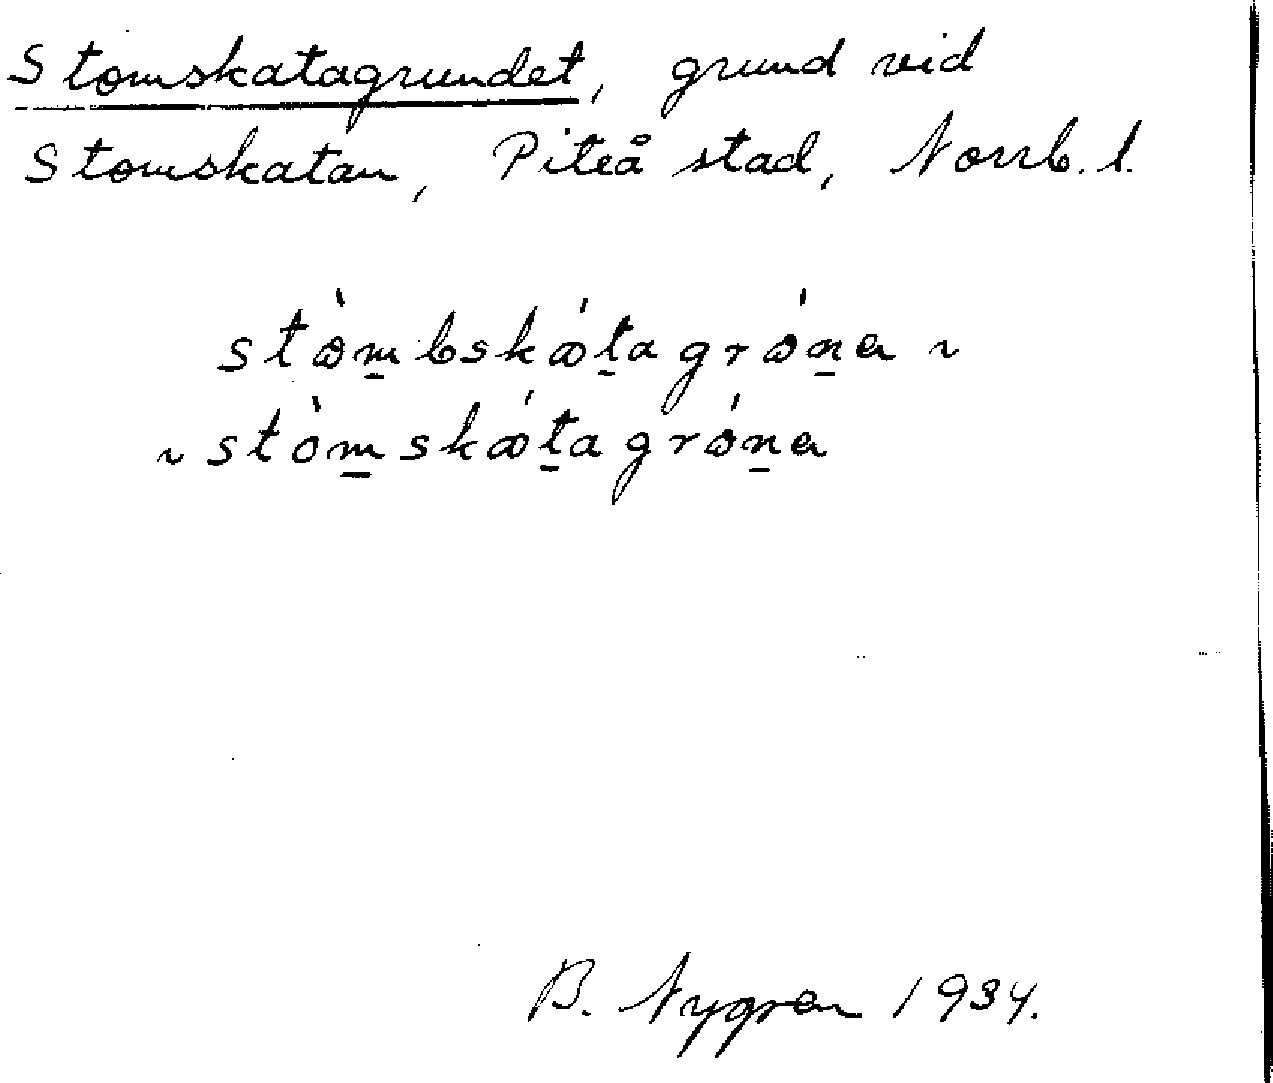 Stomskatagrundet, grund vid
Stomskatan, Piteå stad, Norrb. l.
stòm̲bskát̲agrón̲a ~
~ stòm̲skát̲agrón̲a
B. Nygren 1934.